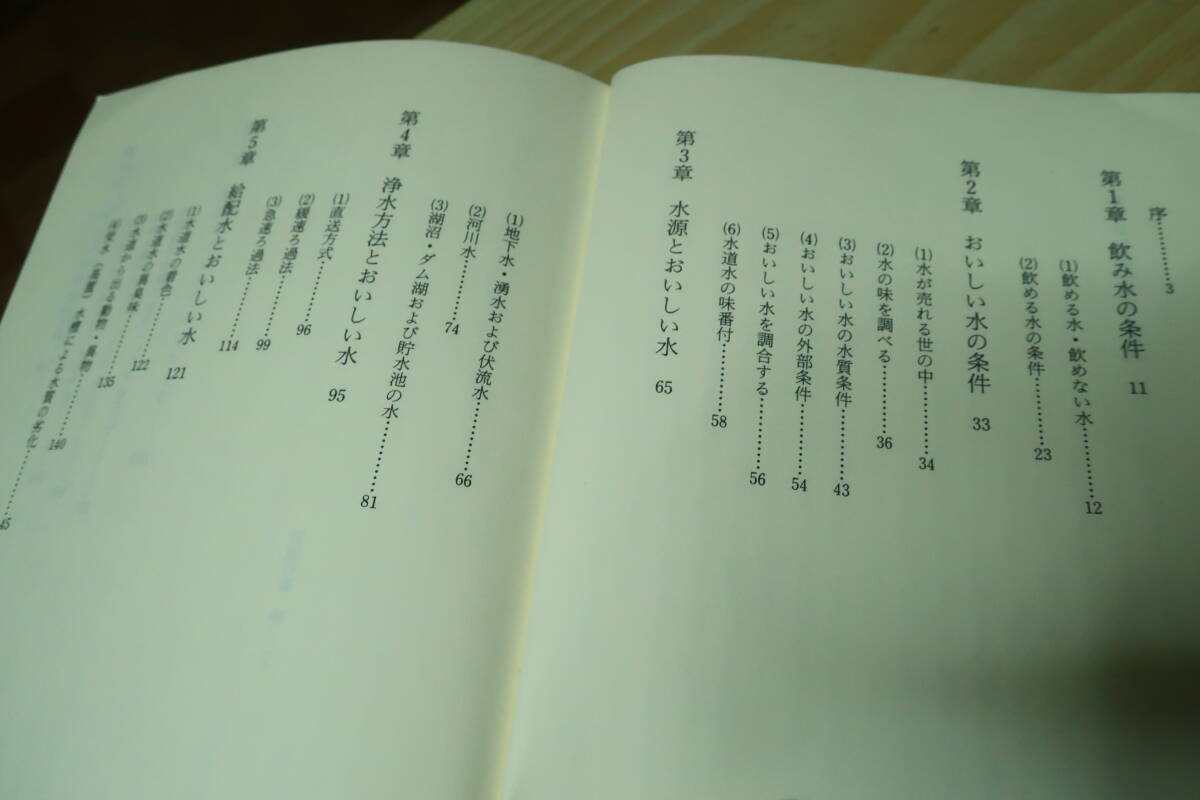 序………3
第1章 飲み水の条件 11
(1)飲める水・飲めない水………12
(2)飲める水の条件………23
第2章 おいしい水の条件 33
(1)水が売れる世の中………34
(2)水の味を調べる………36
(3)おいしい水の水質条件………43
(4)おいしい水の外部条件………54
(5)おいしい水を調合する………56
(6)水道水の味番付………58
第3章 水源とおいしい水 65
(1)地下水・湧水および伏流水………66
(2)河川水………74
(3)湖沼・ダム湖および貯水池の水………81
第4章 浄水方法とおいしい水 95
(1)直送方式………96
(2)緩速ろ過法………99
(3)急速ろ過法………114
第5章 給配水とおいしい水 121
(1)水道水の着色………122
(2)水道水の異臭味………135
(3)水道から出る動物・異物………140
(4)受水(高置)水槽による水質の劣化………45